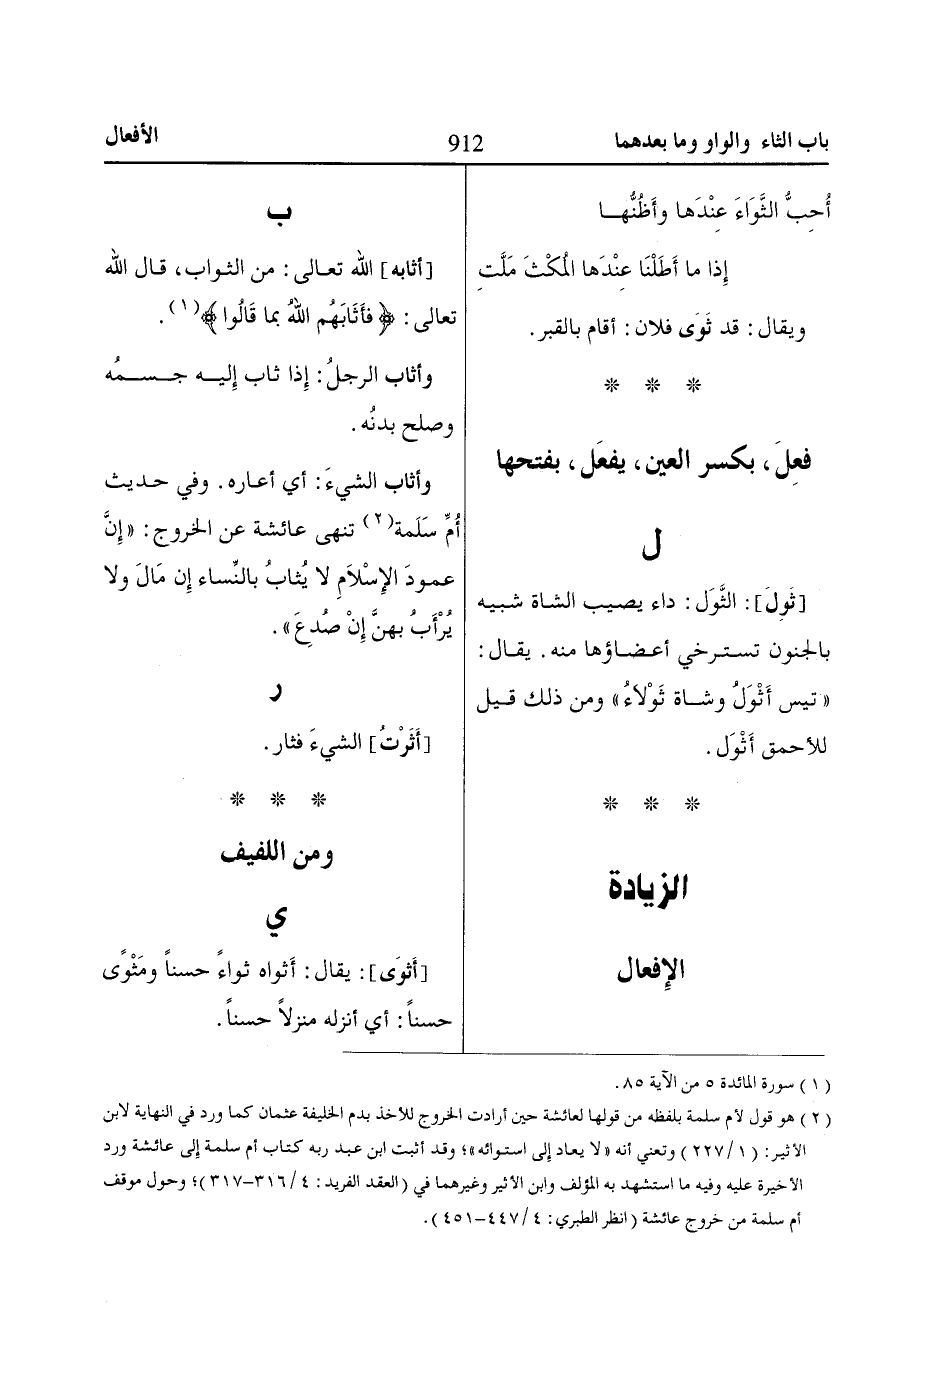 باب الثاء والواو وما بعدهما
912
الأفعال
أُحِبُّ الثَّوَاءَ عِنْدَها وأَظُنُّهـا
إذا ما أَطَلْنَا عِنْدَها المُكْثَ مَلَّتِ
ويقال: قد ثَوَى فلان: أقام بالقبر.
* * *
فعِلَ، بكسر العين، يفعَل، بفتحها
ل
[ثَوِلَ]: الثَّوَل: داء يصيب الشاة شبيه
بالجنون تسترخي أعضاؤها منه. يقال:
«تيس أَثْوَلُ وشاة ثَوْلاءُ» ومن ذلك قيل
للأحمق أَثْوَل.
* * *
الزيادة
الإفعال
ب
[أثابه] الله تعالى: من الثواب، قال الله
تعالى: ﴿فَأَثَابَهُم اللهُ بما قَالُوا﴾(١).
وأثاب الرجلُ: إذا ثاب إليه جسمُه
وصلح بدنُه.
وأثاب الشيءَ: أي أعاره. وفي حديث
أُمِّ سَلَمة(٢) تنهى عائشة عن الخروج: «إِنَّ
عمودَ الإسْلاَمِ لا يُثابُ بالنِّساء إن مَالَ ولا
يُرْأَبُ بهنَّ إنْ صُدِعَ».
ر
[أَثَرْتُ] الشيءَ فثار.
* * *
ومن اللفيف
ي
[أَثْوَى]: يقال: أثواه ثواءً حسناً ومَثْوًى
حسناً: أي أنزله منزلاً حسناً.
(١) سورة المائدة ٥ من الآية ٨٥.
(٢) هو قول لأم سلمة بلفظه من قولها لعائشة حين أرادت الخروج للأخذ بدم الخليفة عثمان كما ورد في النهاية لابن
الأثير: (٢٢٧/١) وتعني أنه «لا يعاد إلى استوائه»؛ وقد أثبت ابن عبد ربه كتاب أم سلمة إلى عائشة ورد
الأخيرة عليه وفيه ما استشهد به المؤلف وابن الأثير وغيرهما في (العقد الفريد: ٣١٦/٤-٣١٧)؛ وحول موقف
أم سلمة من خروج عائشة (انظر الطبري: ٤٤٧/٤-٤٥١).